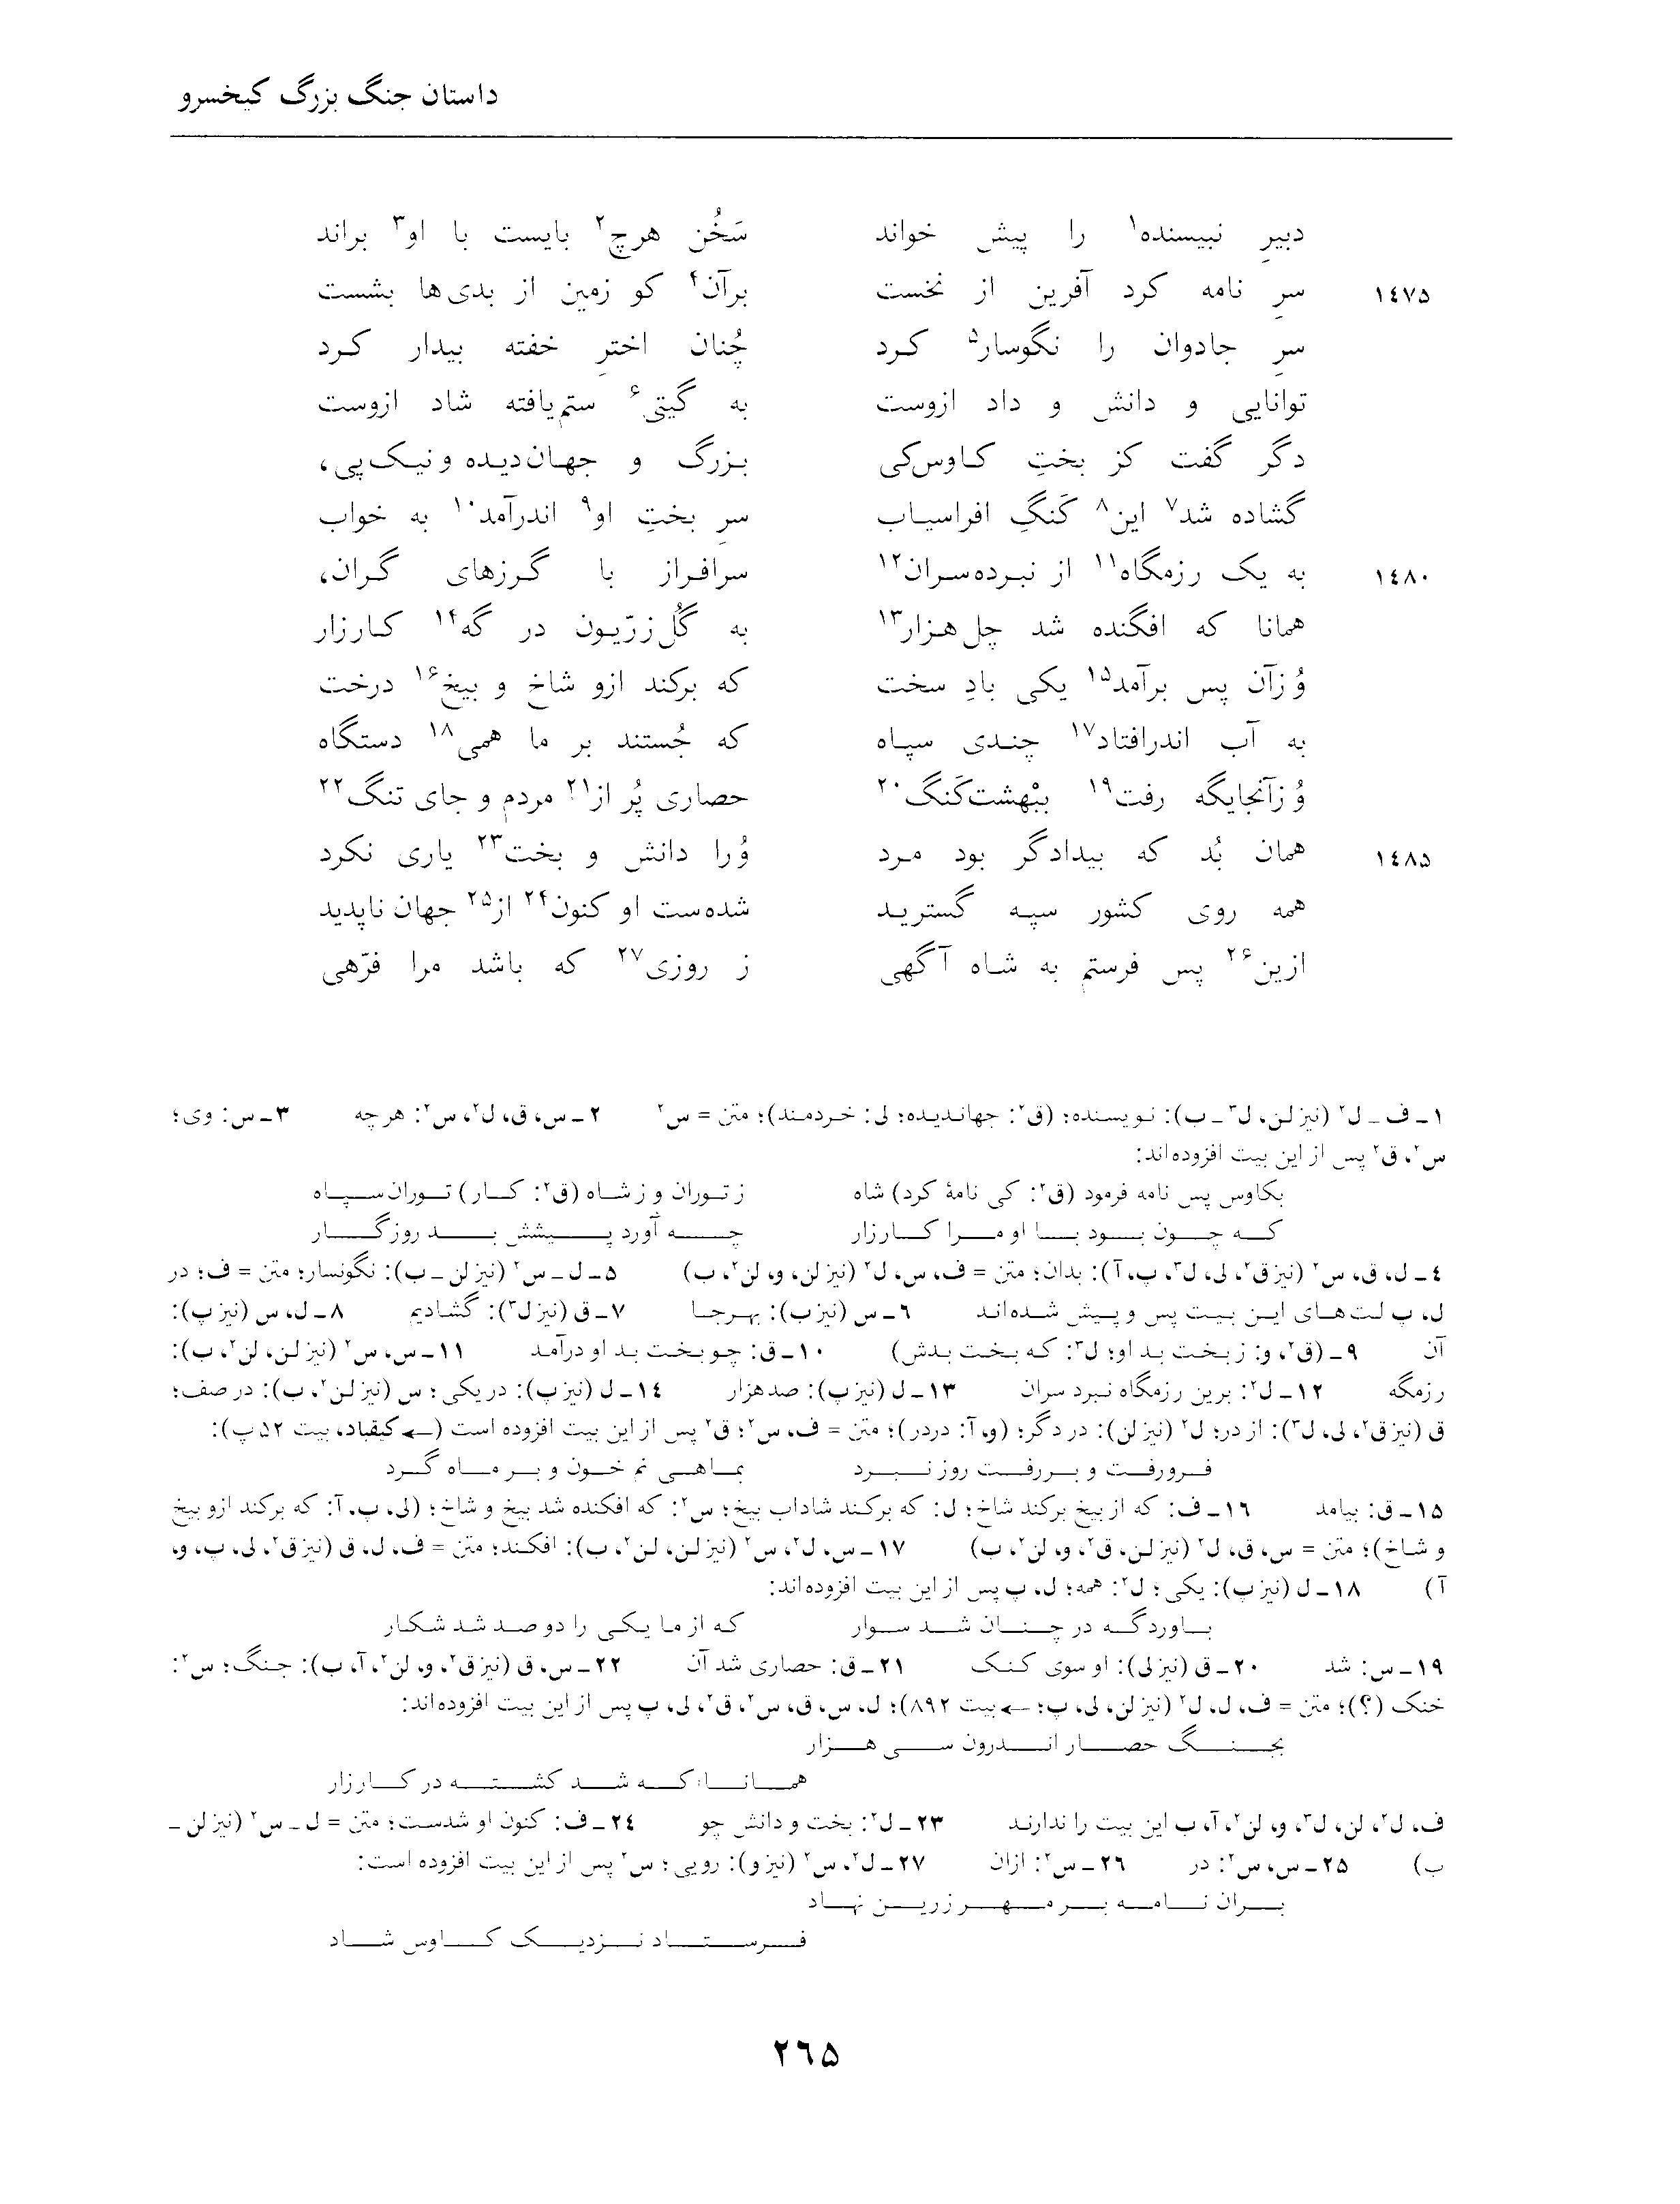 داستان جنگ بزرگ کیخسرو
دبیرِ نبیسنده۱ را پیش خواند سَخُن هرچ۲ بایست با او۳ براند
۱٤۷۵ سرِ نامه کرد آفرین از نخست برآن۴ کو زمین از بدی‌ها بشست
سرِ جادوان را نگوسار۵ کرد چُنان اخترِ خفته بیدار کرد
توانایی و دانش و داد ازوست به گیتی۶ ستم‌یافته شاد ازوست
دگر گفت کز بختِ کاوس‌کی بزرگ و جهان‌دیده و نیک‌پی،
گشاده شد۷ این۸ کَنگِ افراسیاب سرِ بختِ او۹ اندرآمد۱۰ به خواب
۱٤۸۰ به یک رزمگاه۱۱ از نبرده‌سران۱۲ سرافراز با گرزهای گران،
همانا که افگنده شد چل‌هزار۱۳ به گُل‌زرّیون در گه۱۴ کارزار
وُ زآن پس برآمد۱۵ یکی بادِ سخت که برکند ازو شاخ و بیخ۱۶ درخت
به آب اندرافتاد۱۷ چندی سپاه که جُستند بر ما همی۱۸ دستگاه
وُ زآنجایگه رفت۱۹ ببْهشت‌کَنگ۲۰ حصاری پُر از۲۱ مردم و جای تنگ۲۲
۱٤۸۵ همان بُد که بیدادگر بود مرد وُرا دانش و بخت۲۳ یاری نکرد
همه روی کشور سپه گسترید شده‌ست او کنون۲۴ از۲۵ جهان ناپدید
ازین۲۶ پس فرستم به شاه آگهی ز روزی۲۷ که باشد مرا فرّهی
۱ـ ف ـ ل۲ (نیز لن، ل۳ ـ ب): نویسنده؛ (ق۲: جهاندیده؛ لی: خردمند)؛ متن = س۲ ۲ـ س، ق، ل۲، س۲: هرچه ۳ـ س: وی؛
س۲، ق۲ پس از این بیت افزوده‌اند:
بکاوس پس نامه فرمود (ق۲: کی نامهٔ کرد) شاه ز توران و ز شاه (ق۲: کار) توران سپاه
که چون بود با او مرا کارزار چه آورد پیشش بد روزگار
٤ـ ل، ق، س۲ (نیز ق۲، لی، ل۳، پ، آ): بدان؛ متن = ف، س، ل۲ (نیز لن، و، لن۲، ب) ۵ـ ل ـ س۲ (نیز لن ـ ب): نگونسار؛ متن = ف؛ در
ل، پ لت‌های این بیت پس و پیش شده‌اند ٦ـ س (نیز ب): بهرجا ۷ـ ق (نیز ل۳): گشادیم ۸ـ ل، س (نیز پ):
آن ۹ـ (ق۲، و: ز بخت بد او؛ ل۳: که بخت بدش) ۱۰ـ ق: چو بخت بد او درآمد ۱۱ـ س، س۲ (نیز لن، لن۲، ب):
رزمگه ۱۲ـ ل۲: برین رزمگاه نبرد سران ۱۳ـ ل (نیز پ): صدهزار ۱٤ـ ل (نیز پ): در یکی؛ س (نیز لن۲، ب): در صف؛
ق (نیز ق۲، لی، ل۳): از در؛ ل۲ (نیز لن): در دگر؛ (و، آ: دردر)؛ متن = ف، س۲؛ ق۲ پس از این بیت افزوده است (← کیقباد، بیت ۵۲ پ):
فرورفت و بررفت روز نبرد بماهی نم خون و بر ماه گرد
۱۵ـ ق: بیامد ۱٦ـ ف: که از بیخ برکند شاخ؛ ل: که برکند شاداب بیخ؛ س۲: که افکنده شد بیخ و شاخ؛ (لی، پ، آ: که برکند ازو بیخ
و شاخ)؛ متن = س، ق، ل۲ (نیز لن، ق۲، و، لن۲، ب) ۱۷ـ س، ل۲، س۲ (نیز لن، لن۲، ب): افکند؛ متن = ف، ل، ق (نیز ق۲، لی، پ، و،
آ) ۱۸ـ ل (نیز پ): یکی؛ ل۲: همه؛ ل، پ پس از این بیت افزوده‌اند:
باوردگه در چنان شد سوار که از ما یکی را دو صد شد شکار
۱۹ـ س: شد ۲۰ـ ق (نیز لی): او سوی کنک ۲۱ـ ق: حصاری شد آن ۲۲ـ س، ق (نیز ق۲، و، لن۲، آ، ب): جنگ؛ س۲:
خنک (؟)؛ متن = ف، ل، ل۲ (نیز لن، لی، پ؛ ← بیت ۸۹۲)؛ ل، س، ق، س۲، ق۲، لی، پ پس از این بیت افزوده‌اند:
بجنگ حصار اندرون سی هزار
همانا که شد کشته در کارزار
ف، ل۲، لن، ل۳، و، لن۲، آ، ب این بیت را ندارند ۲۳ـ ل۲: بخت و دانش چو ۲٤ـ ف: کنون او شدست؛ متن = ل ـ س۲ (نیز لن ـ
ب) ۲۵ـ س، س۲: در ۲٦ـ س۲: ازان ۲۷ـ ل۲، س۲ (نیز و): رویی؛ س۲ پس از این بیت افزوده است:
بران نامه بر مهر زرین نهاد
فرستاد نزدیک کاوس شاد
۲٦۵